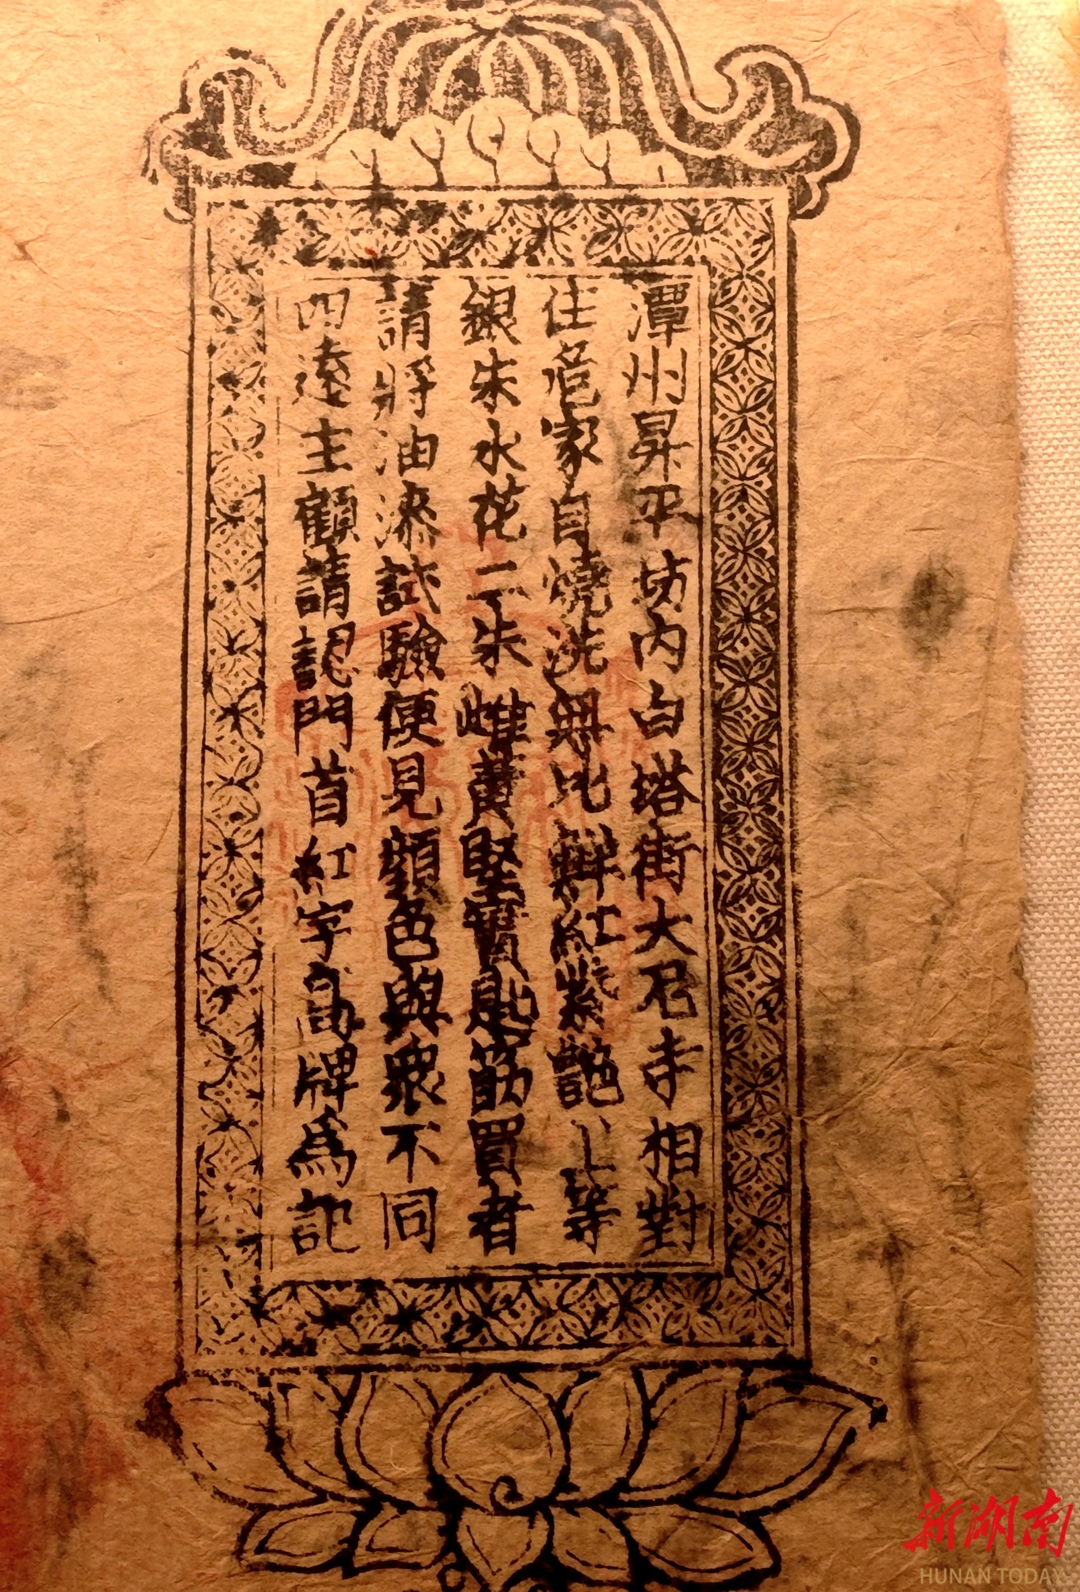 潭州昇平坊内白塔街大尼寺相對
住危家自燒洗無比鮮紅紫艷上等
銀朱水花二朱雌黃堅實匙筯買者
請將油漆試驗便見顏色與衆不同
四遠主顧請認門首紅字高牌為記
新湖南
HUNAN TODAY